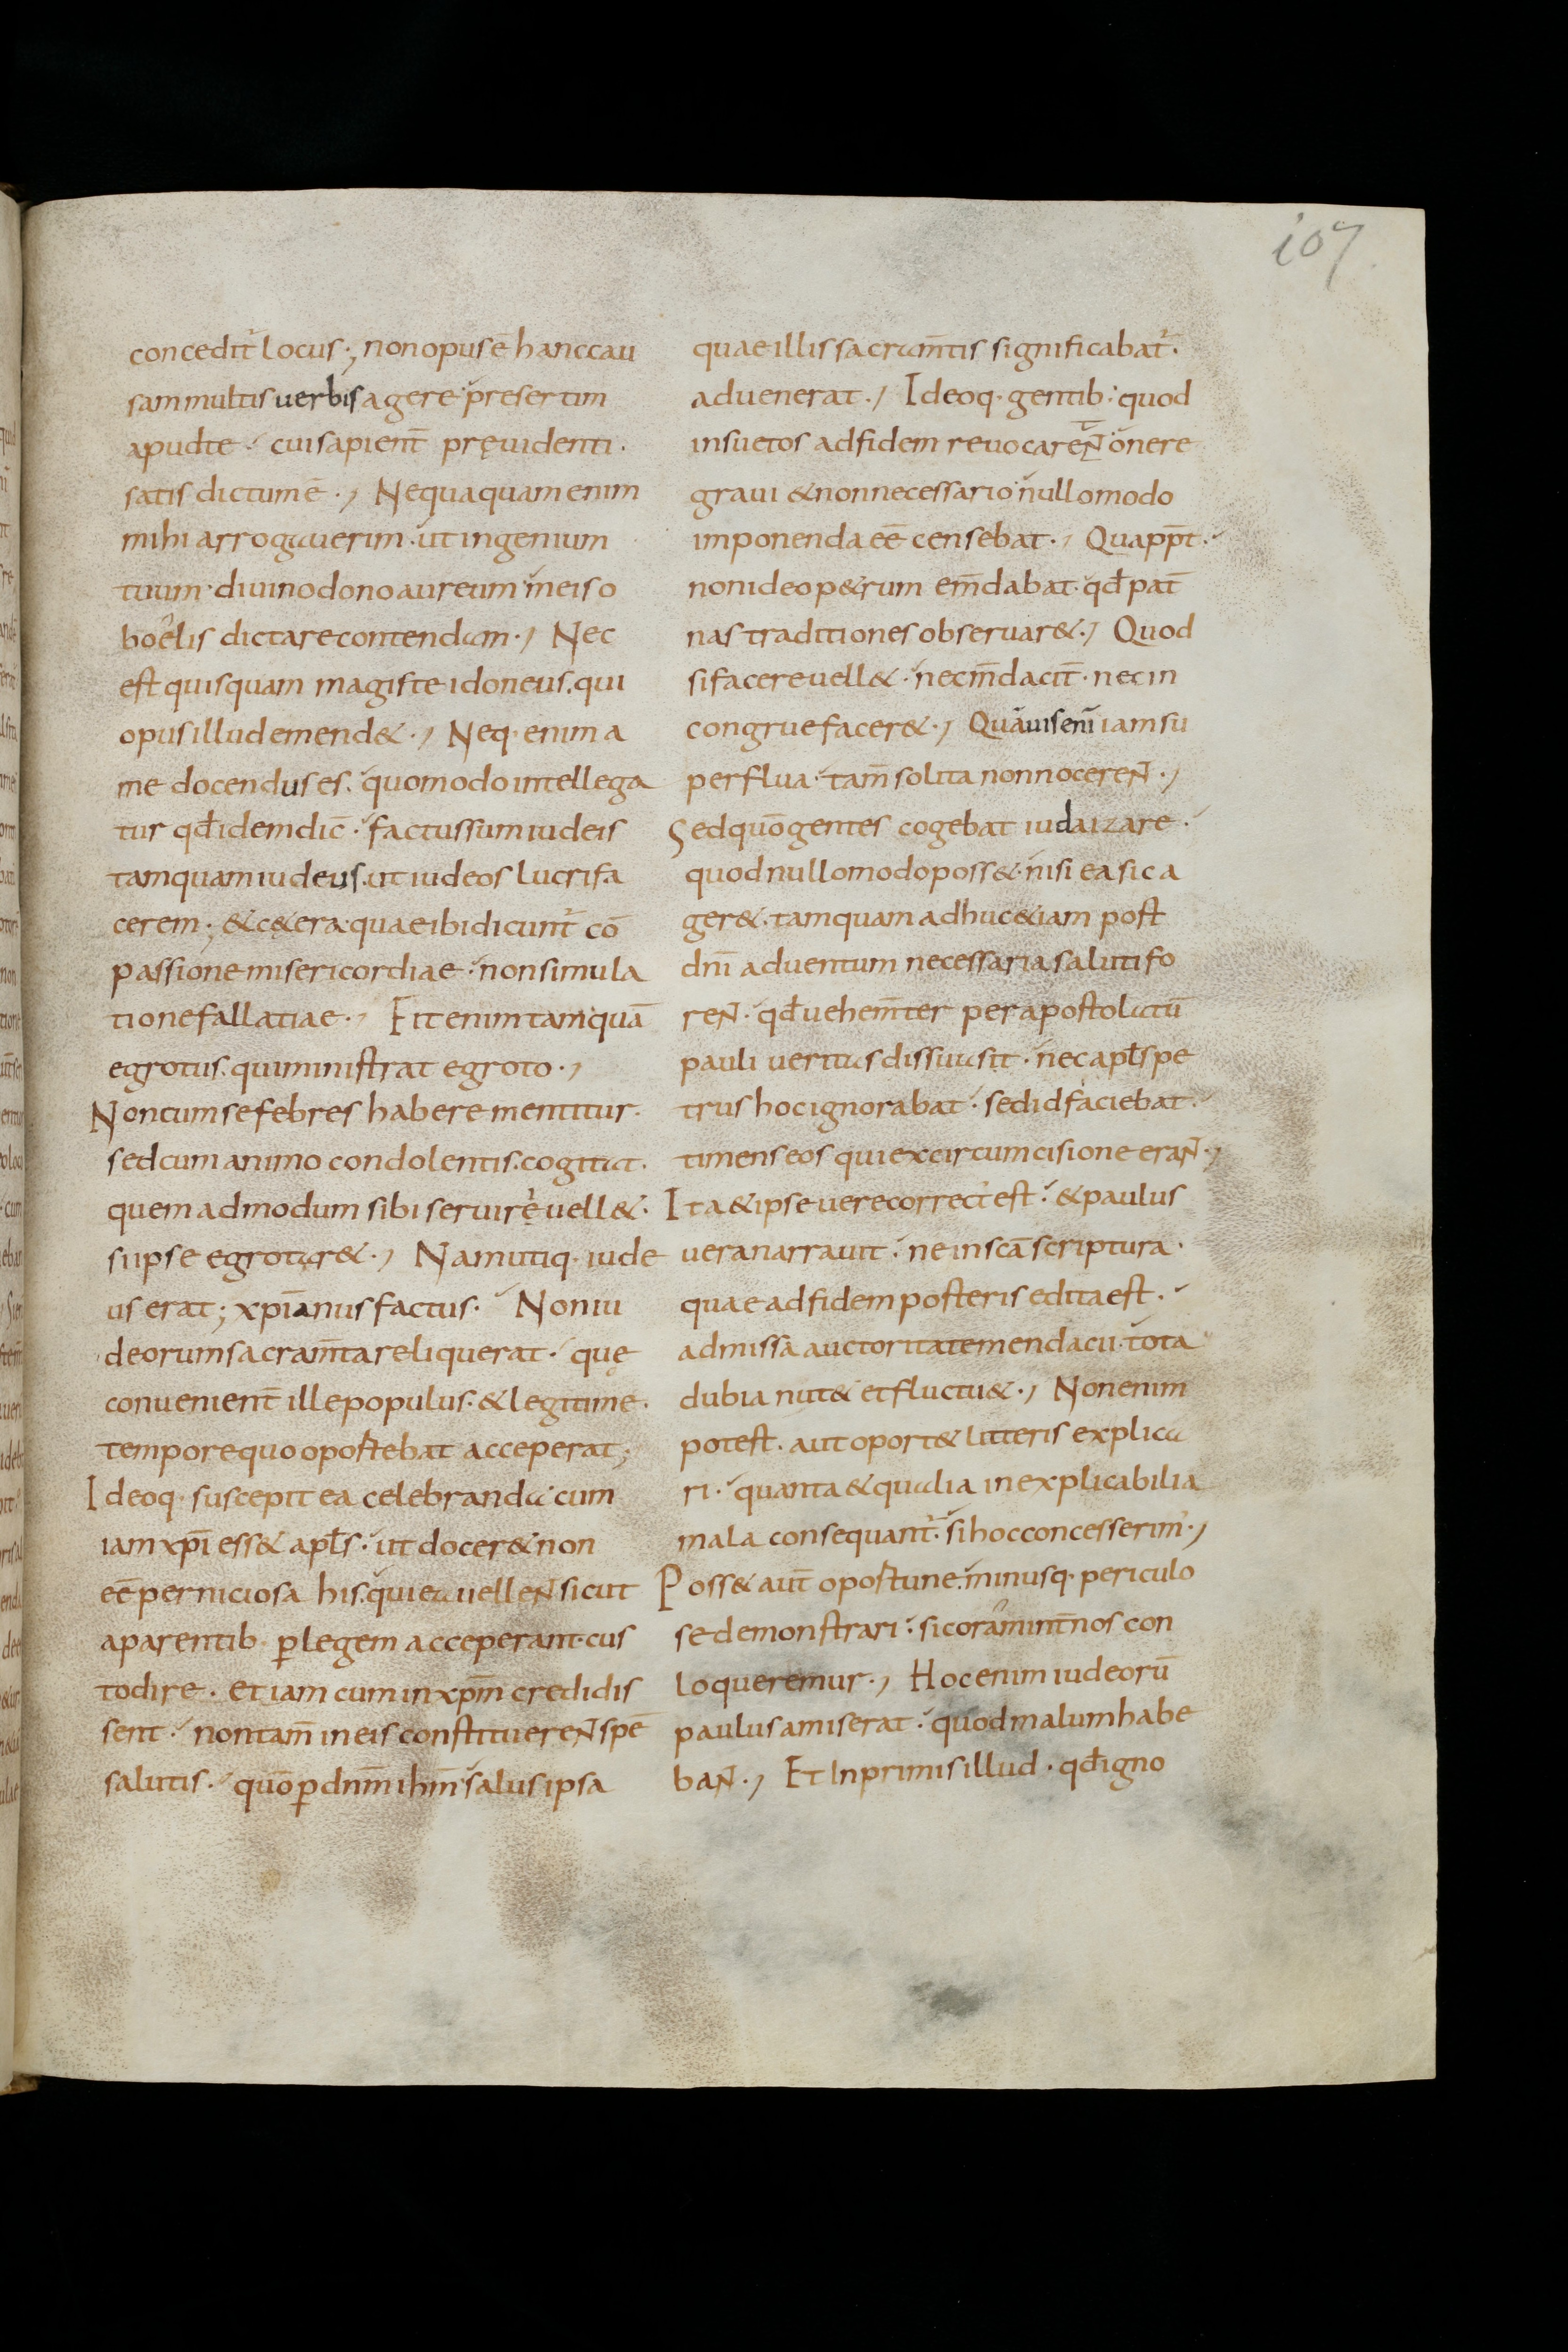 107
concedit̄ locus·; non opus ē hanc cau
sam multis uerbis agere presertim
apud te· cui sapient̄ pręuidenti·
satis dictum ē·, Nequaquam enim
mihi arrogauerim· ut ingenium
tuum· diuino dono aureum meis o
boelis dictare contendam·, Nec
est quisquam magis te idoneus· qui
opus illud emend&·, Neq· enim a
me docendus es· quomodo intellega
tur qđ idem dic̄· factus sum iudeis
tamquam iudeus· ut iudeos lucrifa
cerem·; & c&era· quae ibi dicunt̄ cō
passione misericordiae· non simula
tione fallatiae·, Fit enim tamquā
egrotus· qui ministrat egroto·,
Non cum se febres habere mentitur·
sed cum animo condolentis· cogitat·
quem admodum sibi seruirę uell&·
si ipse egrotar&·, Nam utiq· iude
us erat; xp̄ianus factus· Non iu
deorum sacram̄ta reliquerat· quę
conuenient̄ ille populus· & legitime·
tempore quo oportebat acceperat;
Ideoq· suscepit ea celebranda cum
iam xp̄i ess& apłs· ut docer& non
eē perniciosa his· qui ea uelleNt sicut
a parentib· ꝑ legem acceperant· cus
todire· etiam cum in xp̄m credidis
sent· non tam̄ in eis constituereNt spē
salutis· quō ꝑ dnm̄ ihm̄ salus ipsa
quae illis sacram̄tis significabat̄·
aduenerat·, Ideoq· gentib· quod
insuetos ad fidem reuocareNt onere
graui & non necessario nullo modo
imponenda eē censebat·, Quapp̄t·
non ideo p&rum em̄dabat· qđ pat̄
nas traditiones obseruar&·, Quod
si facere uell&· nec m̄dacit̄· nec in
congrue facer&·, Quāuis eni iam su
perflua· tam̄ solita non nocereNt·,
Sed quō gentes cogebat iudaizare·
quod nullo modo poss&· nisi ea sic a
ger&· tamquam adhuc &iam post
dnī aduentum necessaria saluti fo
reNt· qđ uehem̄ter per apostolatū
pauli ueritas dissuasit· nec apłs pe
trus hoc ignorabat· sed id faciebat·
timens eos qui ex circumcisione eraNt·,
Ita & ipse uere correct̄ est· & paulus
uera narrauit· ne in scā scriptura·
quae ad fidem posteris edita est·
admissa auctoritate mendacii· tota
dubia nut& et fluctu&·, Non enim
potest· aut oport& litteris explica
ri· quanta & qualia inexplicabilia
mala consequant̄· si hoc concesserim·,
Poss& aut̄ oportune· minusq· periculo
se demonstrari· si coram int̄ nos con
loqueremur·, Hoc enim iudeorū
paulus amiserat· quod malum habe
baNt·, Et In primis illud· qđ igno